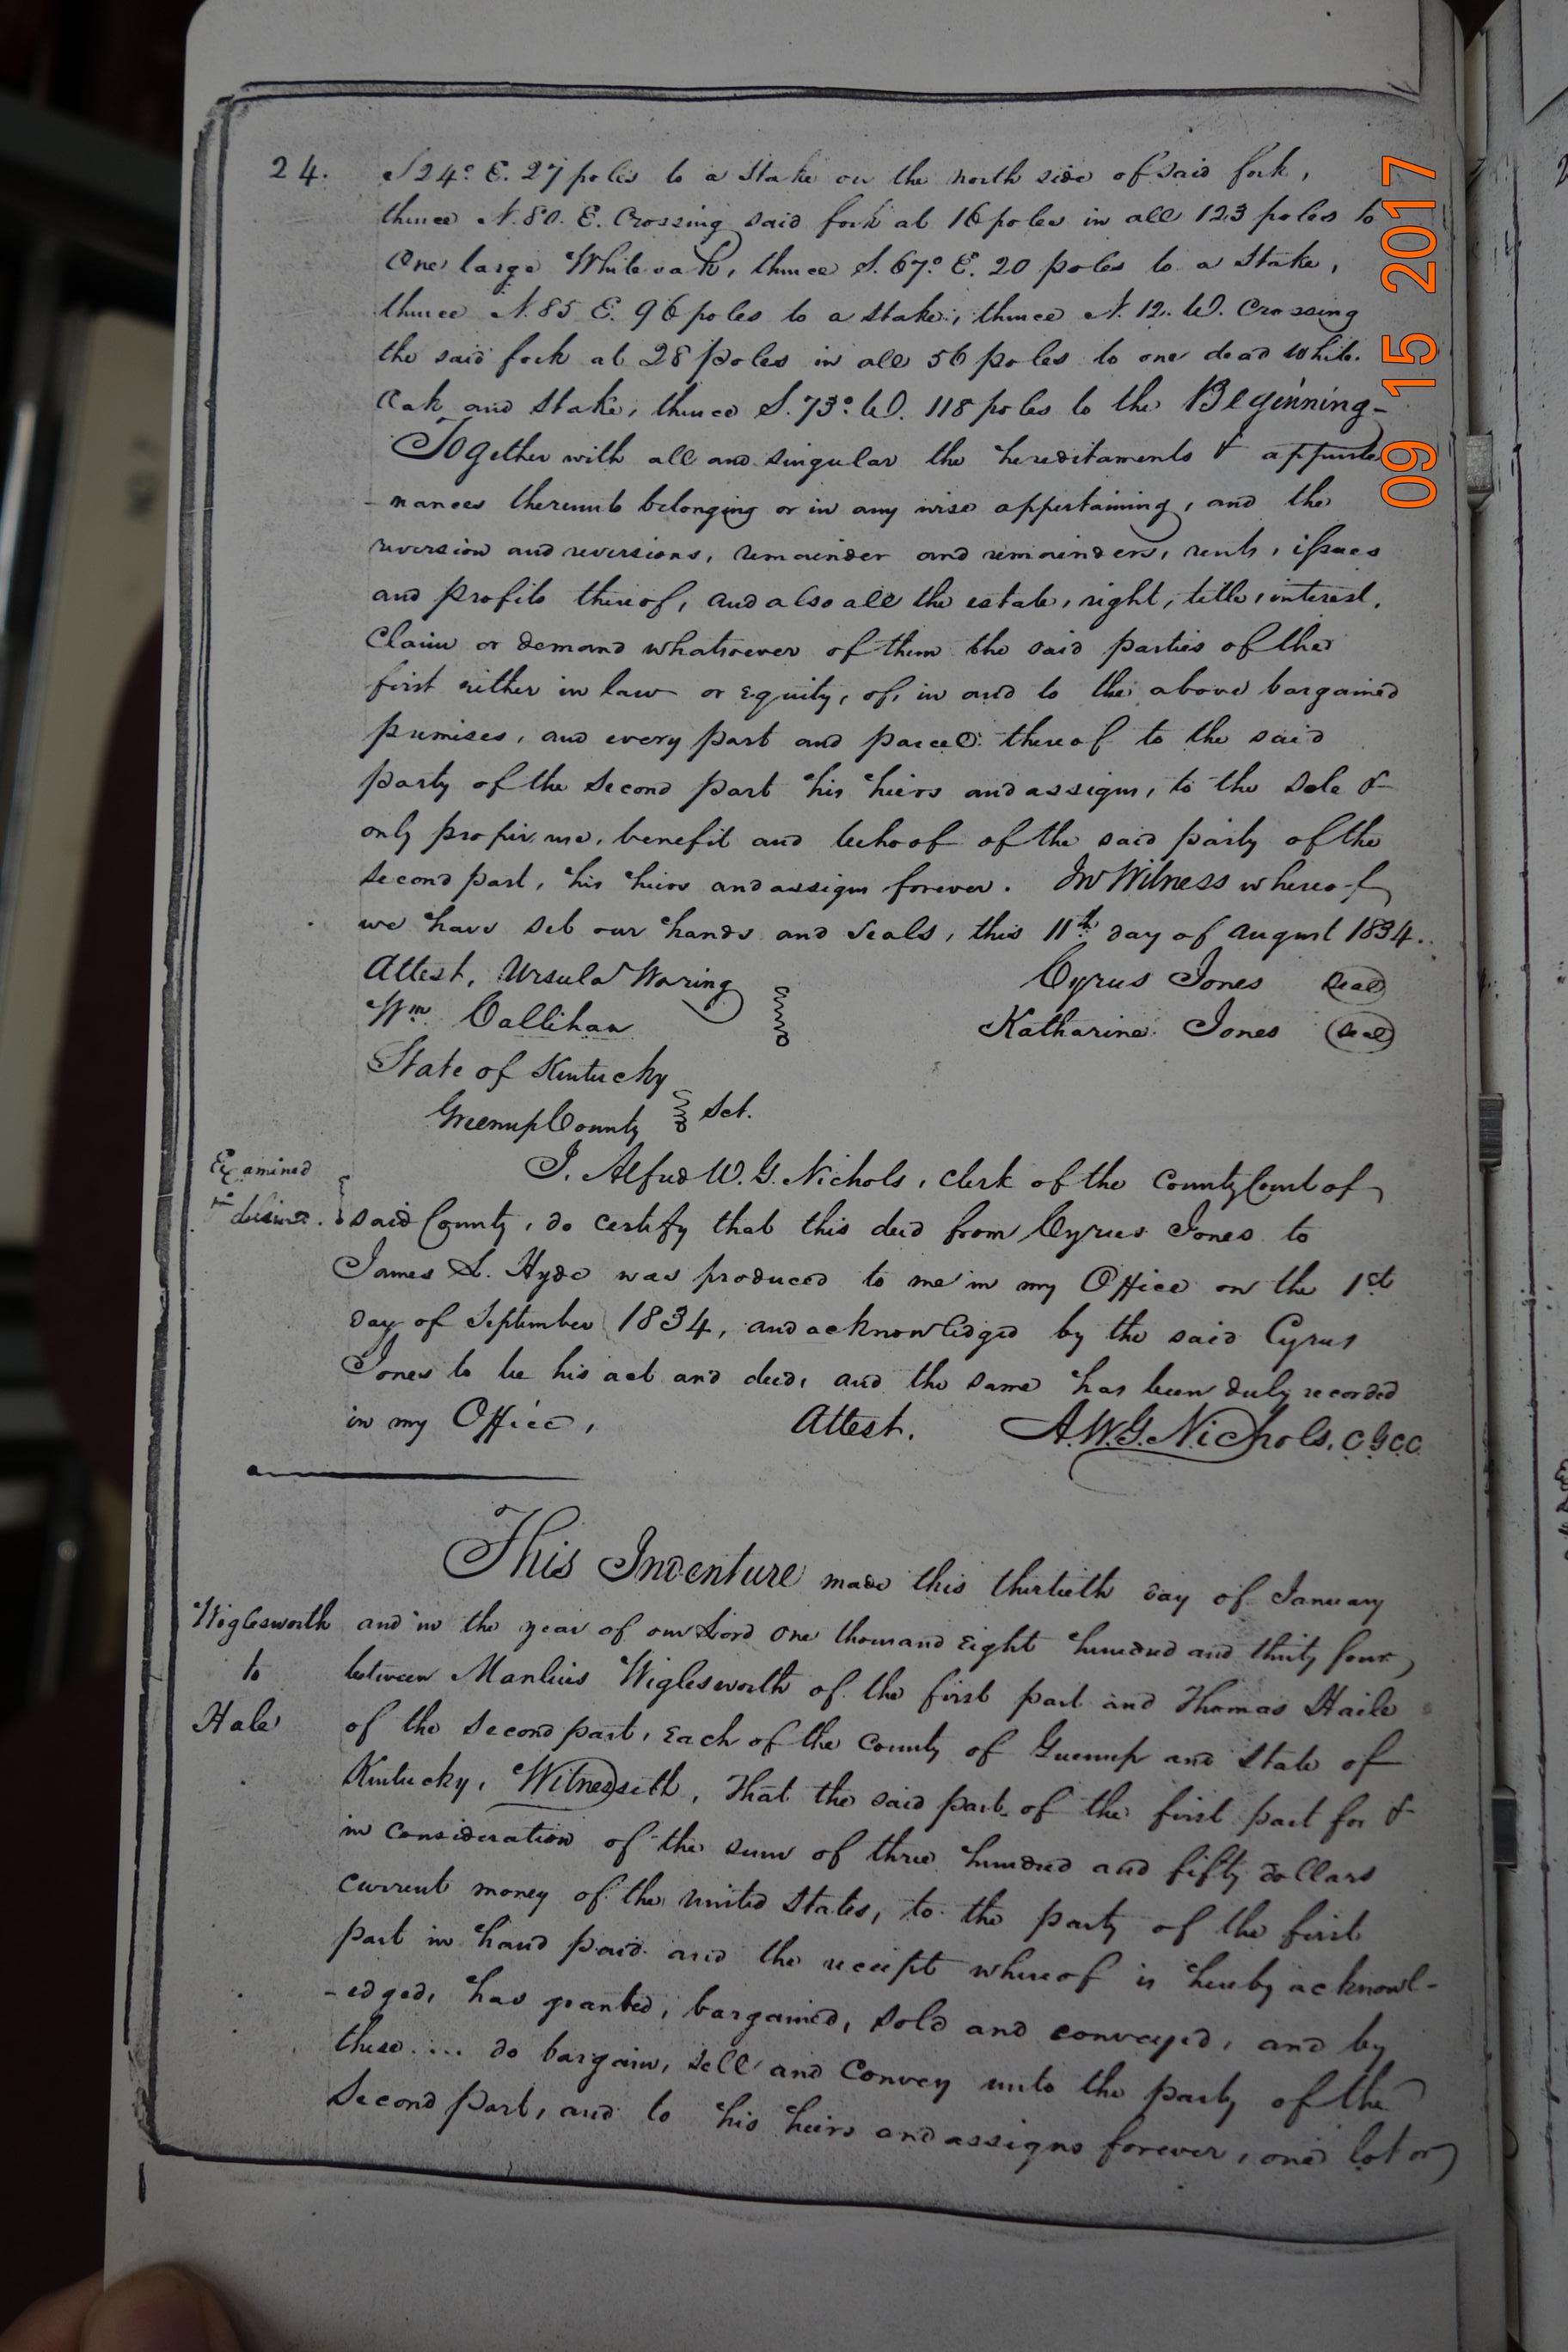 24.
S 24° E. 27 poles to a Stake on the north side of said fork,
thence N. 80. E. Crossing said fork at 16 poles in all 123 poles to
One large White oak, thence S. 67° E. 20 poles to a Stake,
thence N. 85 E. 96 poles to a stake, thence N. 12. W. Crossing
the said fork at 28 poles in all 56 poles to one dead white.
Oak and Stake, thence S. 73° W. 118 poles to the Beginning-
Together with all and singular the hereditaments & appurte
-nances thereunto belonging or in any wise appertaining, and the
reversion and reversions, remainder and remainders, rents, issues
and profits thereof, and also all the estate, right, title, interest,
Claim or demand whatsoever of them the said parties of the
first either in law or equity, of, in and to the above bargained
premises, and every part and parcel thereof to the said
party of the Second part his heirs and assigns, to the Sole &
only proper use, benefit and behoof of the said party of the
second part, his heirs and assigns forever. In Witness whereof
we have set our hands and seals, this 11th day of August 1834.
Attest, Ursula Waring
Cyrus Jones Seal
Wm Callihan
Katharine Jones Seal
State of Kentucky
Greenup County Sct.
Examined
&
I. Alfred W. G. Nichols, Clerk of the County Court of
said County, do certify that this deed from Cyrus Jones to
James L. Hyde was produced to me in my Office on the 1st
day of September 1834, and acknowledged by the said Cyrus
Jones to be his act and deed, and the same has been duly recorded
in my Office, Attest. A.W.G. Nichols, C.G.C.C.
This Indenture made this thirtieth day of January
Wiglesworth
to
Hale
and in the year of our Lord One thousand Eight hundred and thirty four,
between Manlius Wiglesworth of the first part and Thomas Haile
of the Second part, Each of the County of Greenup and State of
Kentucky, Witnesseth, That the said part of the first part for &
in consideration of the sum of three hundred and fifty dollars
current money of the United States, to the party of the first
part in hand paid and the receipt whereof is hereby acknowl-
-edged, has granted, bargained, sold and conveyed, and by
these.... do bargain, sell and Convey unto the party of the
Second part, and to his heirs and assigns forever, one lot or
09 15 2017